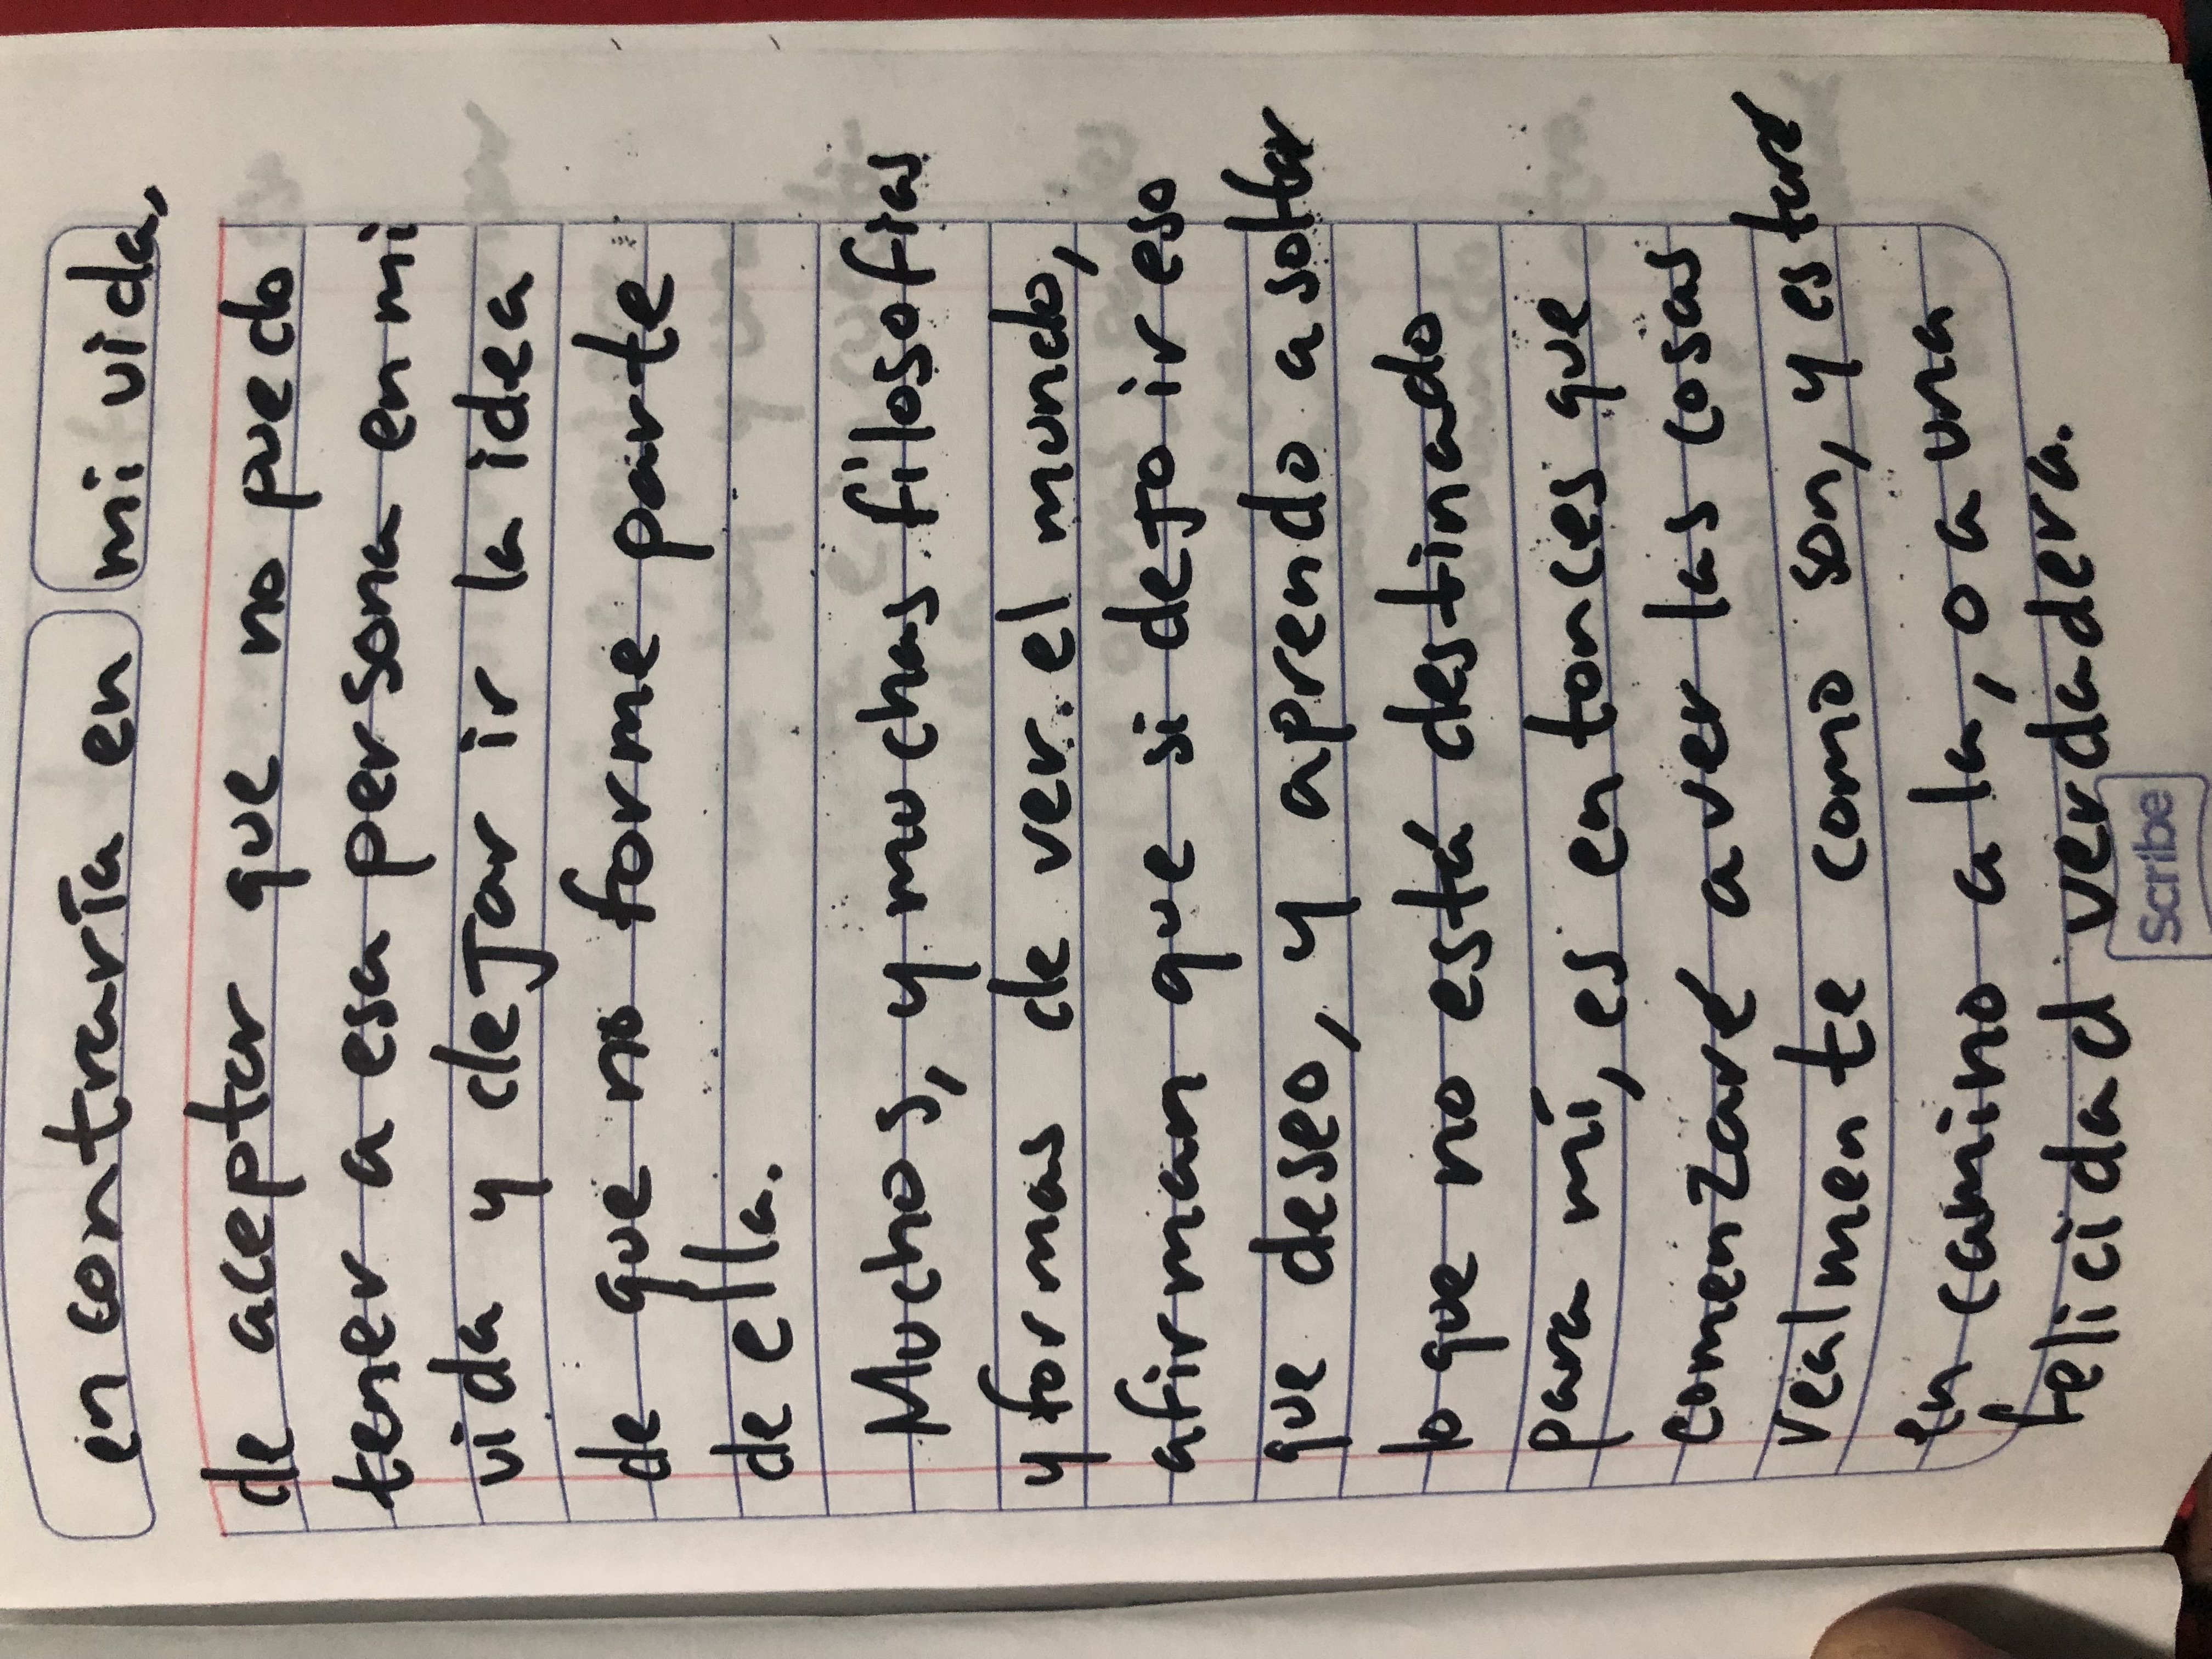 en contraría en mi vida,
de aceptar que no puedo
tener a esa persona en mi
vida y dejar ir la idea
de que no forme parte
de ella.
Muchos, y muchas filosofias
y formas de ver el mundo,
afirman que si dejo ir eso
que deseo, y aprendo a soltar
lo que no está destinado
para mí, es entonces que
comenzaré a ver las cosas
realmente como son, y estaré
en camino a la, o a una
felicidad verdadera.
Scribe